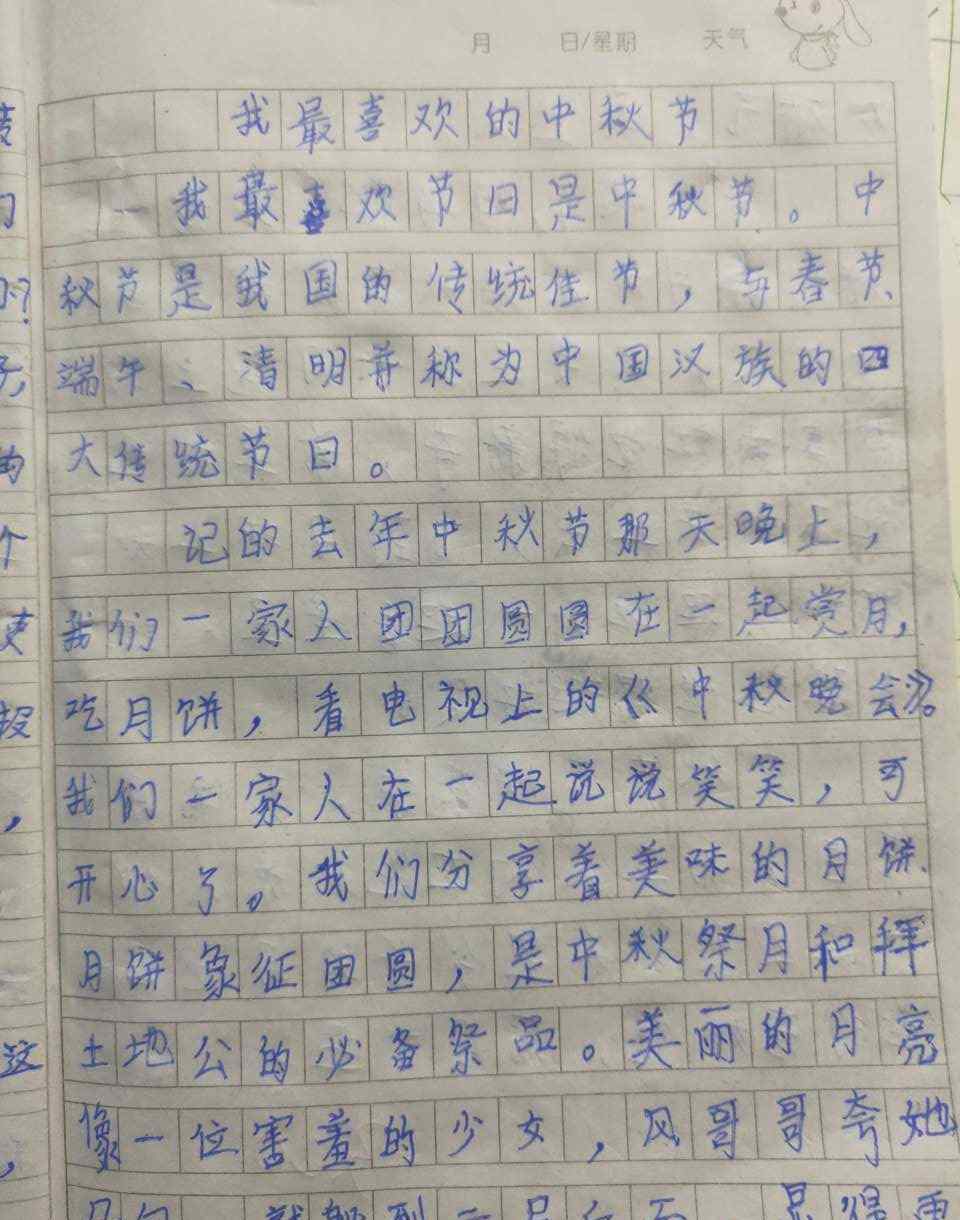 月 日/星期 天气
我最喜欢的中秋节
一我最喜欢节日是中秋节。中
秋节是我国的传统佳节，与春节、
端午、清明并称为中国汉族的四
大传统节日。
记的去年中秋节那天晚上，
我们一家人团团圆圆在一起赏月，
吃月饼，看电视上的《中秋晚会》。
我们一家人在一起说说笑笑，可
开心了。我们分享着美味的月饼.
月饼象征团圆，是中秋祭月和拜
土地公的必备祭品。美丽的月亮
像一位害羞的少女，风哥哥夸她
几句